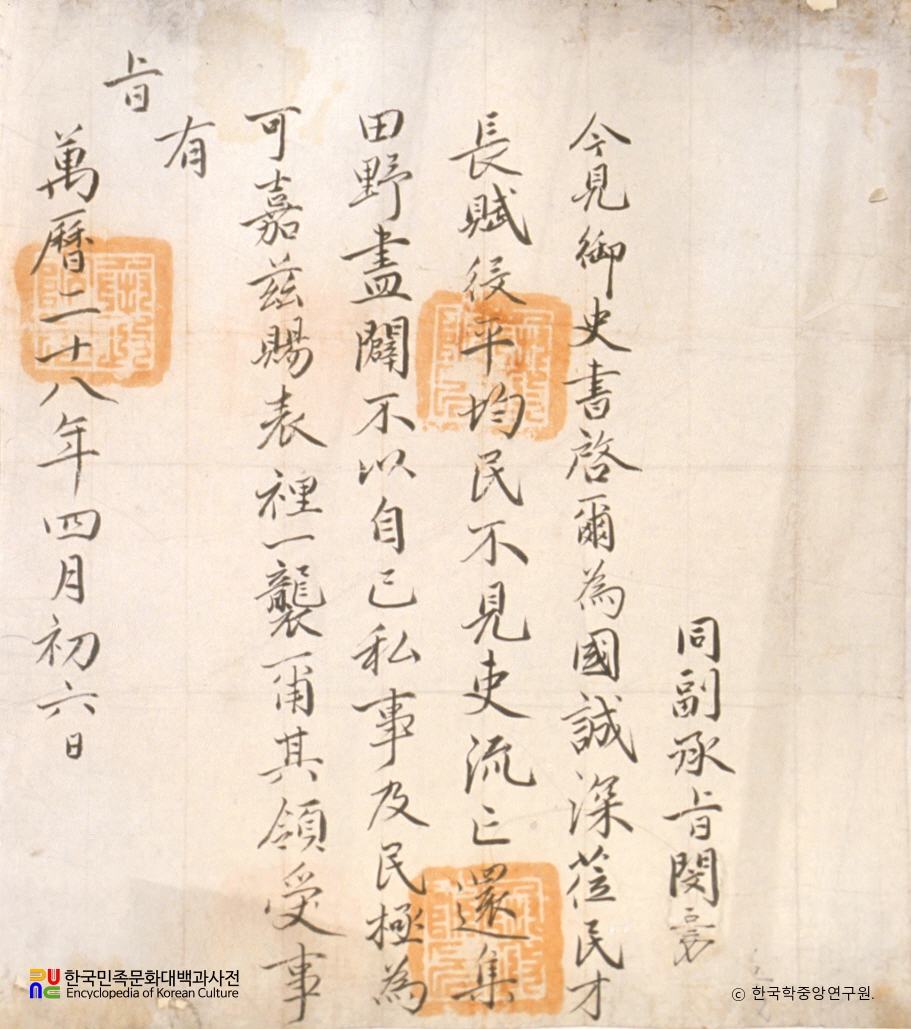 同副承旨閔
今見御史書啓爾為國誠深莅民才
長賦役平均民不見吏流亡還集
田野盡闢不以自己私事及民極為
可嘉茲賜表裡一襲爾其領受事
有
旨
萬曆二十八年四月初六日
한국민족문화대백과사전
Encyclopedia of Korean Culture
ⓒ 한국학중앙연구원.